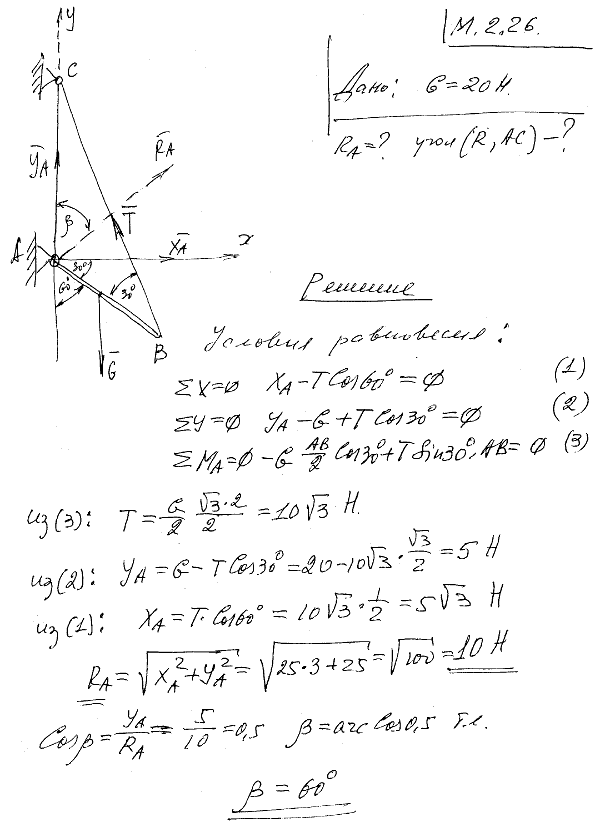 М.2.26.
Дано: G=20Н.
R_A=? угол (R, AC) –?
y
C
Y̅_A
R̅_A
β
T̅
A
X̅_A
x
30°
60°
30°
G̅
B
Решение
Условия равновесия:
ΣX=0 X_A – T Cos60° = 0 (1)
ΣY=0 Y_A – G + T Cos30° = 0 (2)
ΣM_A=0 – G AB/2 Cos30° + T Sin30°·AB = 0 (3)
из(3): T = G/2 √3·2/2 = 10√3 Н.
из(2): Y_A = G – T Cos30° = 20 – 10√3 · √3/2 = 5 Н
из(1): X_A = T·Cos60° = 10√3 · 1/2 = 5√3 Н
R_A = √(X_A² + Y_A²) = √(25·3+25) = √100 = 10 Н
Cosβ = Y_A/R_A = 5/10 = 0,5 β = arc Cos 0,5 т.е.
β = 60°